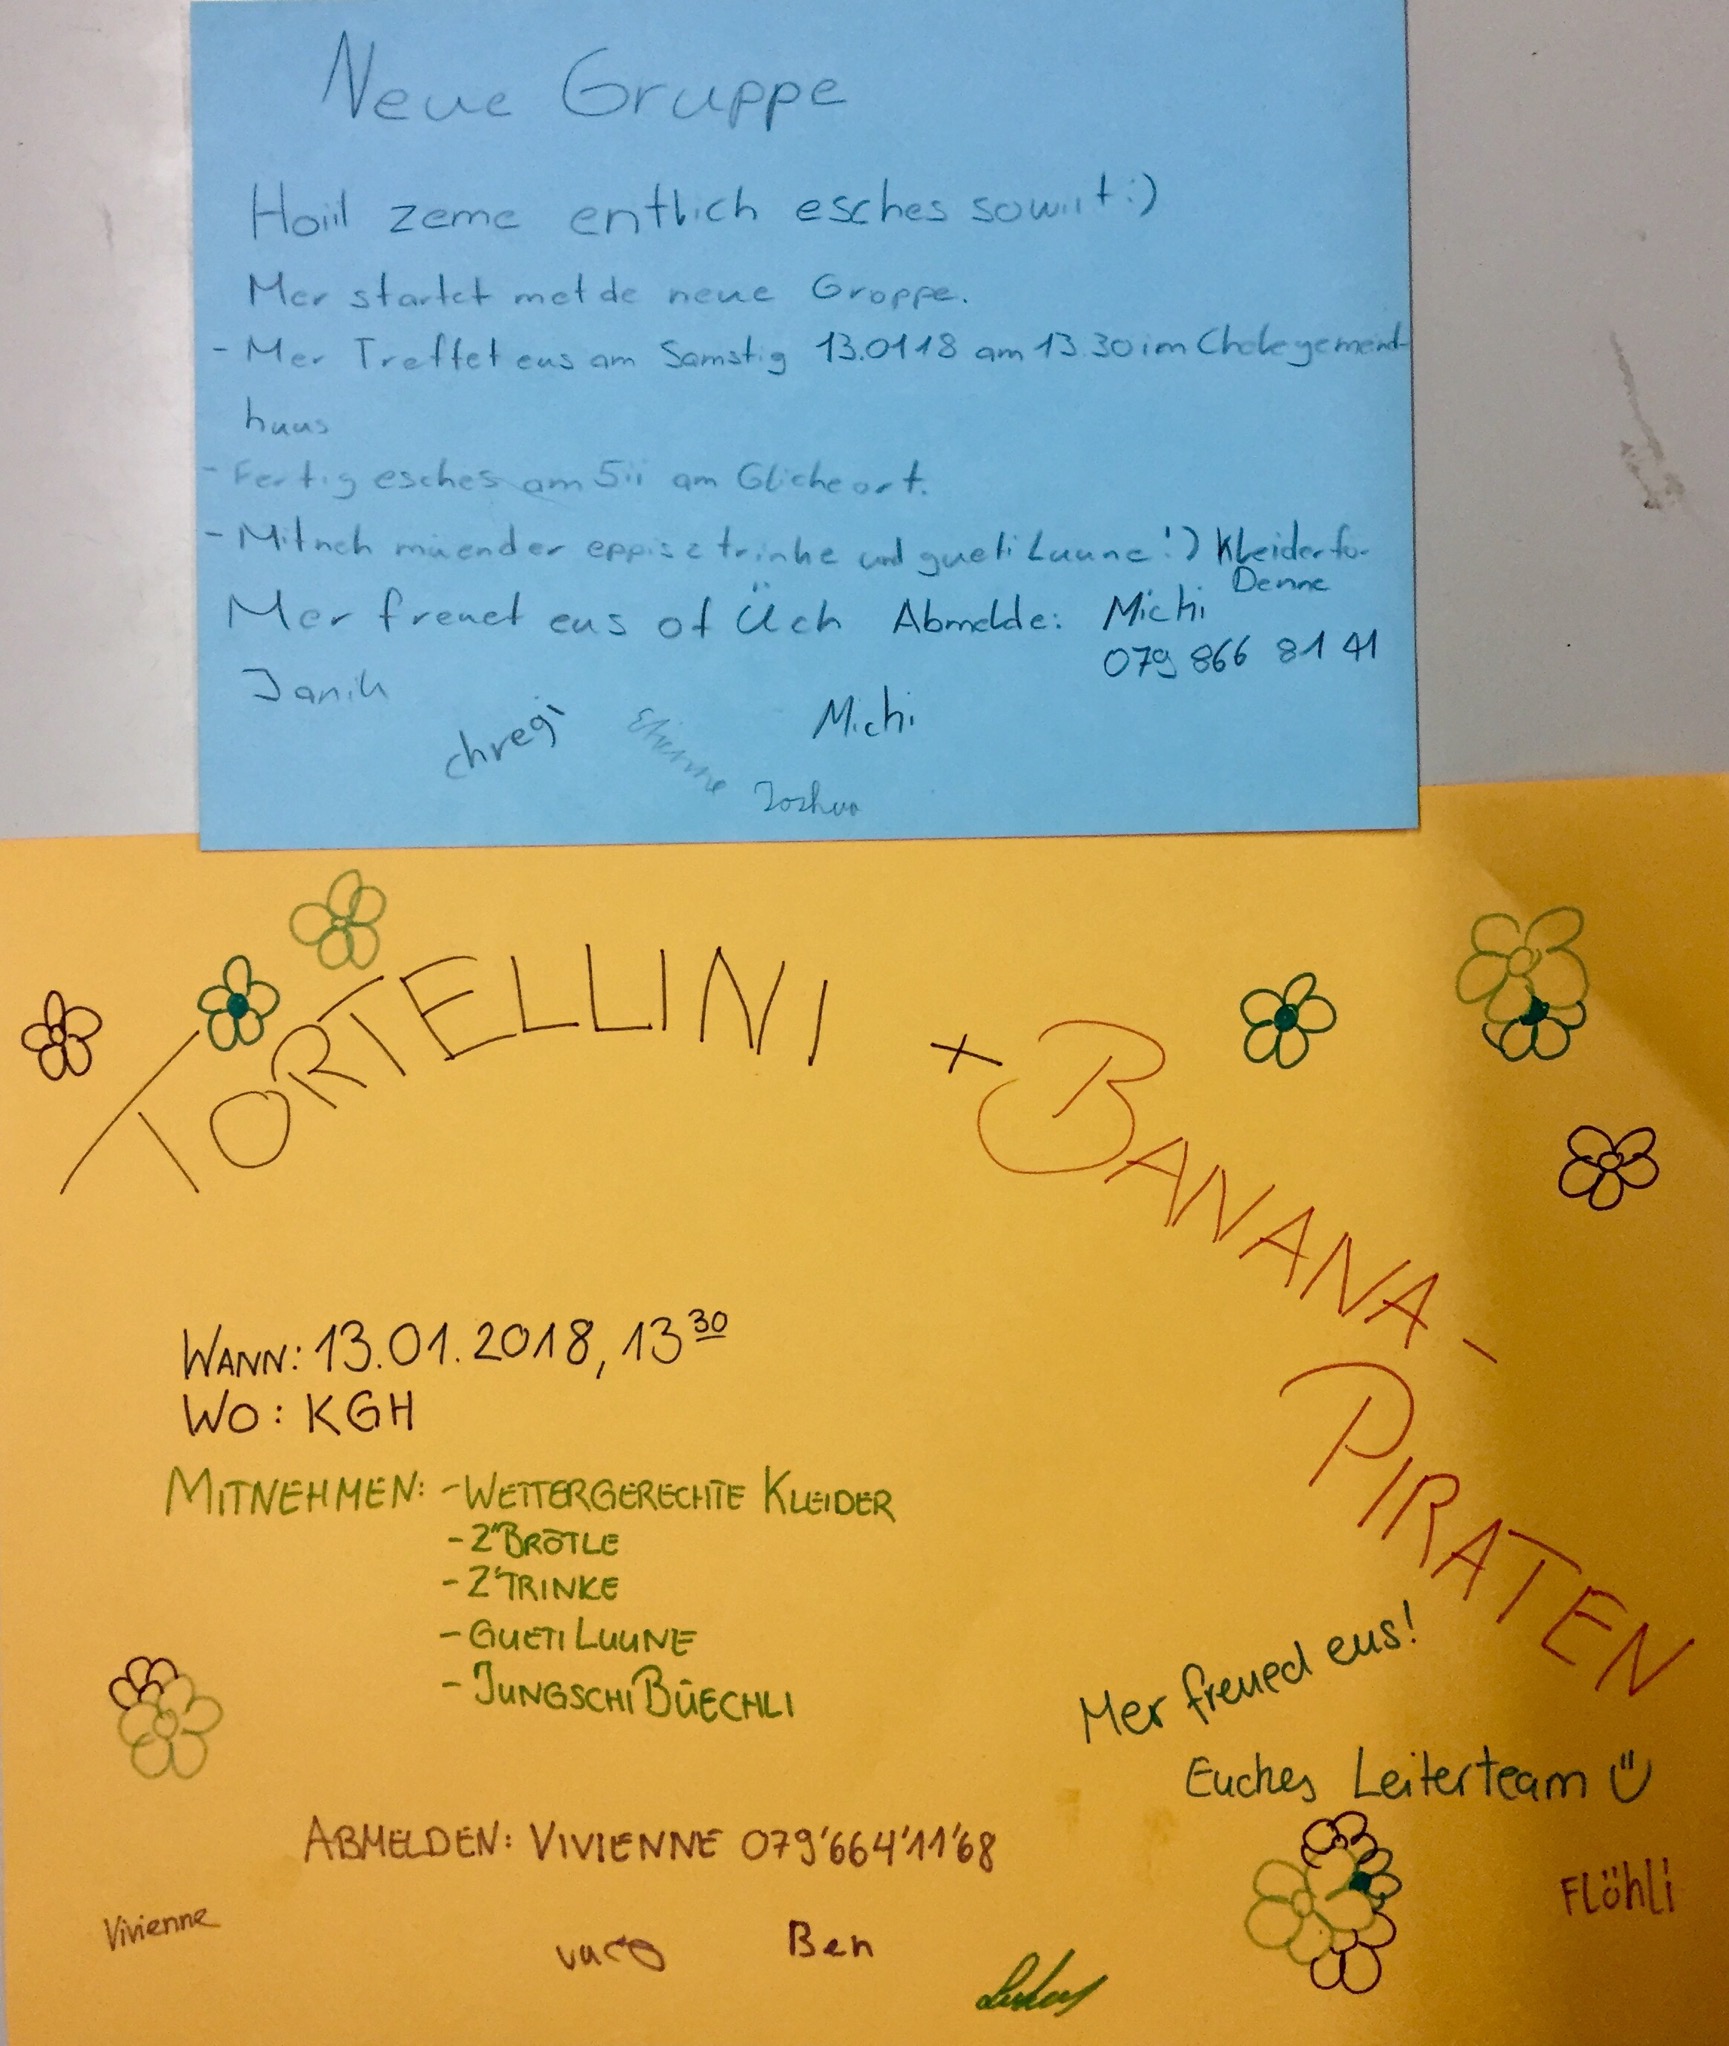 Neue Gruppe
Hoiil zeme entlich esches sowiit :)
Mer startet met de neue Groppe.
- Mer Treffet eus am Samstig 13.0118 am 13.30 im Chelegemend-
huus
- Fertig esches am 5ii am Gliche ort.
- Mitneh müender eppis z trinke und gueti Luune :) Kleider fo-
Denne
Mer freuet eus of Üch Abmelde: Michi
079 866 81 41
Janik
chregi Etienne Michi
Joshua
TORTELLINI + BANANA-
PIRATEN
WANN: 13.01.2018, 13 30
WO: KGH
MITNEHMEN: - WETTERGERECHTE KLEIDER
- Z'BRÖTLE
- Z'TRINKE
- GUETI LUUNE
- JUNGSCHI BÜECHLI
Mer freued eus!
Euches Leiterteam Ü
ABMELDEN: VIVIENNE 079'664'11'68
Flöhli
Vivienne
Ben